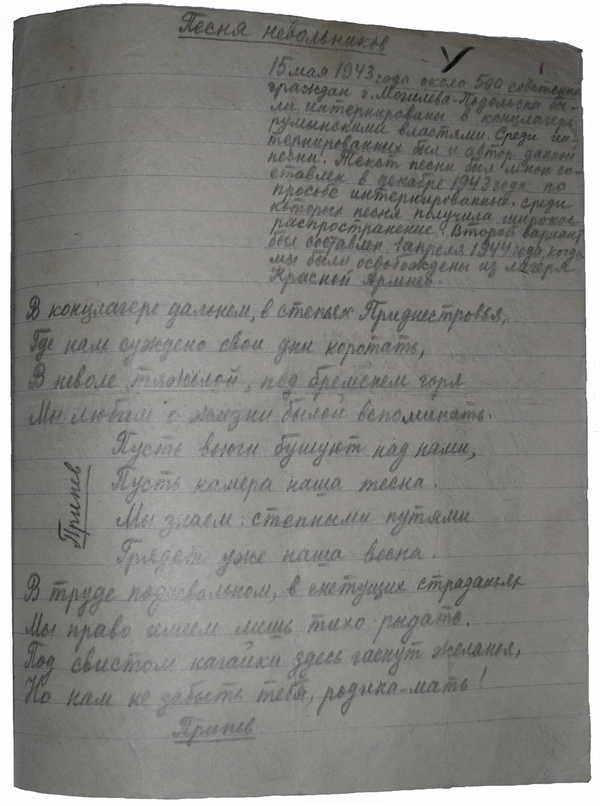 Песня невольников
15 мая 1943 года около 500 советских
граждан г. Могилева-Подольска бы-
ли интернированы в концлагерь
румынскими властями. Среди ин-
тернированных был и автор данной
песни. Текст песни был мною со-
ставлен в декабре 1943 года по
просьбе интернированных, среди
которых песня получила широкое
распространение. Второй вариант
был составлен 1 апреля 1944 года, когда
мы были освобождены из лагеря
Красной Армией.
В концлагере дальнем, в степях Приднестровья,
Где нам суждено свои дни коротать,
В неволе тяжёлой, под бременем горя
Мы любим о жизни былой вспоминать.
Припев
Пусть вьюги бушуют над нами,
Пусть камера наша тесна.
Мы знаем: степными путями
Грядёт уже наша весна.
В труде подневольном, в гнетущих страданьях
Мы право имеем лишь тихо рыдать.
Под свистом нагайки здесь гаснут желанья,
Но нам не забыть тебя, родина-мать!
Припев